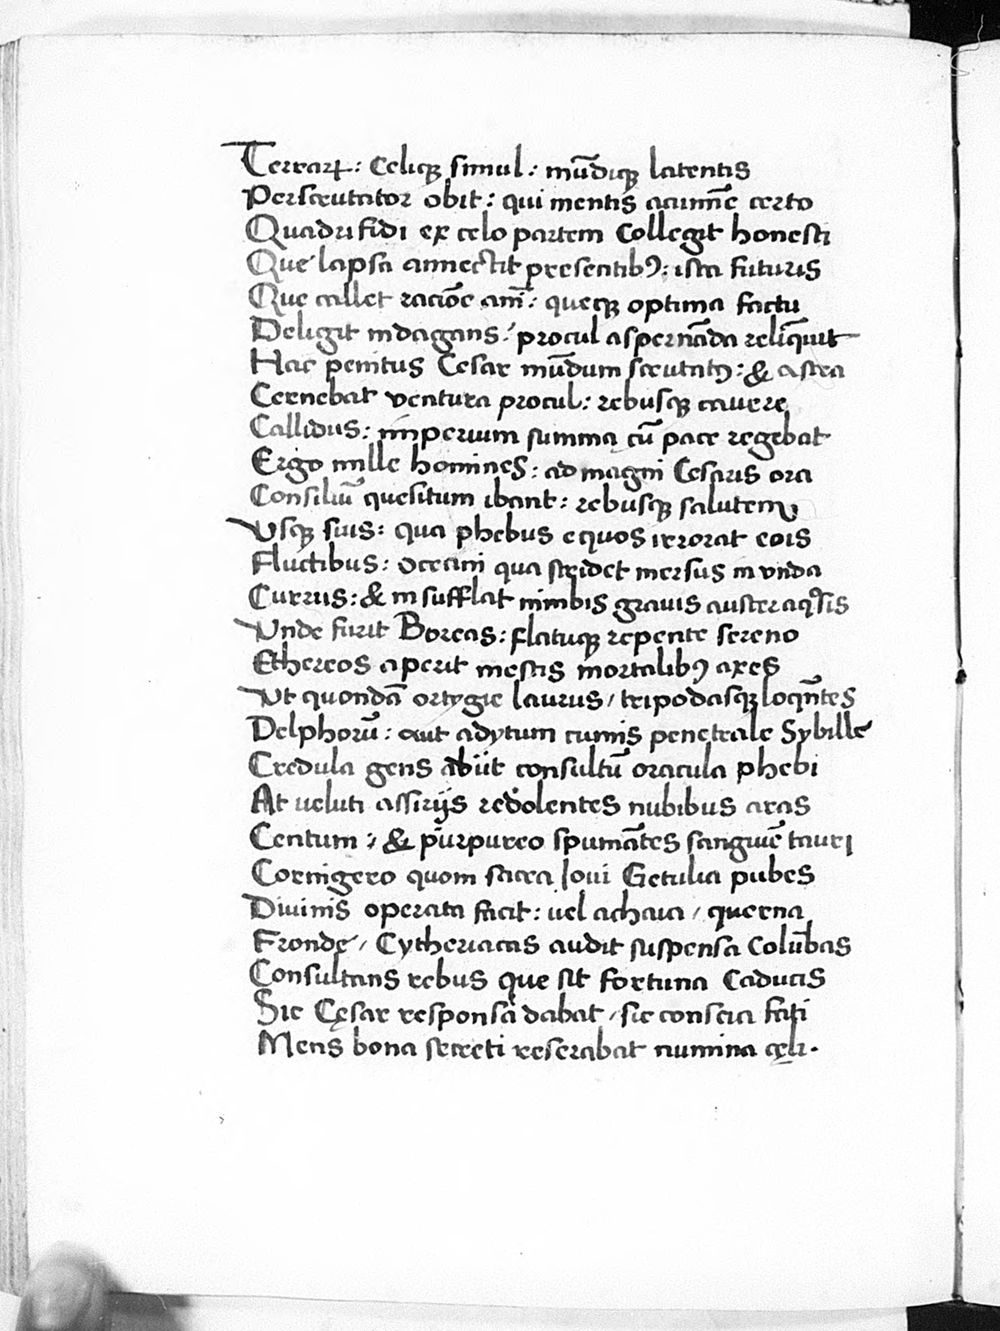 Terrarꝝ: Celiqꝫ simul: mūdiqꝫ latentis
Perscrutator obit: qui mentis acumīe certo
Quadrifidi ex celo partem Collegit honesti
Que lapsa annectit presentibꝰ: ista futuris
Que callet racioē aīm̄: queqꝫ optima factu
Deligit indagans: procul aspernāda relīquit
Hac penitus Cesar mūdum scrutatꝰ: & astra
Cernebat ventura procul: rebusqꝫ cavere
Callidus: imperium summa cū pace regebat
Ergo mille homines: ad magni Cesaris ora
Consiliū quesitum ibant: rebusqꝫ salutem
Vsqꝫ suis: qua phebus equos irrorat eois
Fluctibus: oceani qua stridet mersus in vnda
Currus: & insufflat nimbis gravis auster aqͦsis
Vnde furit Boreas: flatuqꝫ repente sereno
Ethereos aperit mestis mortalibꝰ axes
Vt quondā ortygie laurus / tripodasqꝫ loqn̄tes
Delphorū: aut adytum cumis penetrale Sybille
Credula gens abiit consultū oracula phebi
At veluti assirijs redolentes nubibus aras
Centum; & purpureo spumātes sanguiē tauri
Cornigero quom sacra Iovi Getulia pubes
Divinis operata facit: vel achaia / querna
Fronde / Cytheriacas audit suspensa Colūbas
Consultans rebus que sit fortuna Caducis
Sic Cęsar responsa dabat / sic conscia fati
Mens bona secreti reserabat numina cęli.